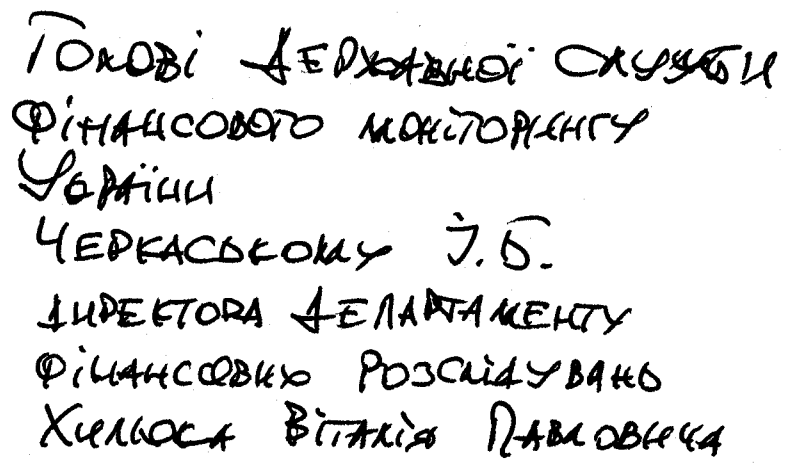 Голові Державної служби
фінансового моніторингу
України
Черкаському І.Б.
директора Департаменту
фінансових розслідувань
Хильюса Віталія Павловича